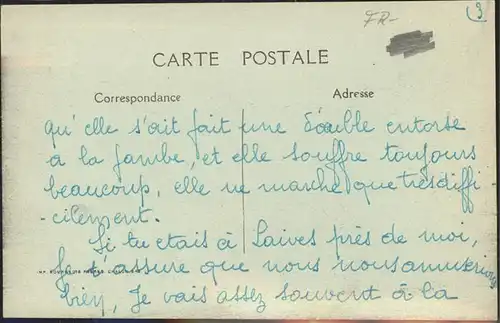 3
FR-
CARTE POSTALE
Correspondance
Adresse
qu'elle s'ait fait une double entorse
à la jambe, et elle souffre toujours
beaucoup, elle ne marche que très diffi
-cilement.
Si tu etais à Laives près de moi,
je t'assure que nous nous amuserions
bien, Je vais assez souvent à la